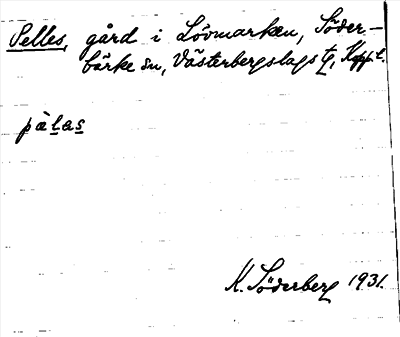 Pelles, gård i Lövmarken, Söder-
bärke sn, Västerbergslags tg, Kopp.l.
pä̀las
K. Söderberg 1931.